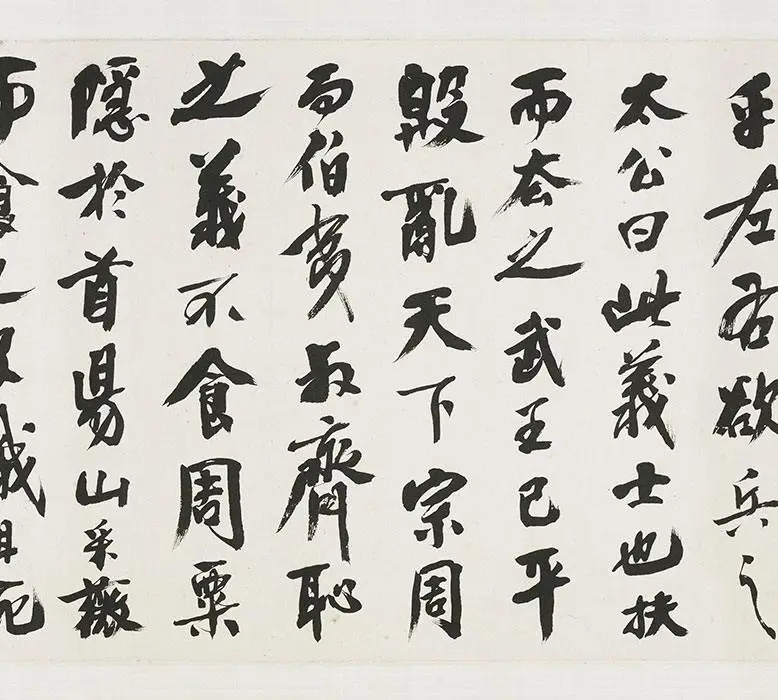 乎左右欲兵之
太公曰此義士也扶
而去之武王已平
殷亂天下宗周
而伯夷叔齊恥
之義不食周粟
隱於首昜山采薇
而食之及餓且死